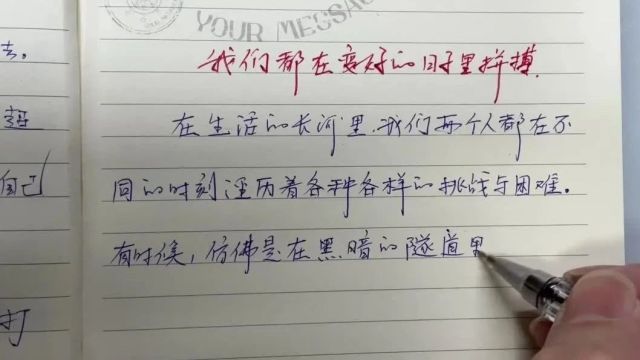 YOUR MESSA
我们都在变好的日子里拼搏.
去。
在生活的长河里.我们两个人都在不
超
同的时刻经历着各种各样的挑战与困难。
自己
有时候，仿佛是在黑暗的隧道里
打